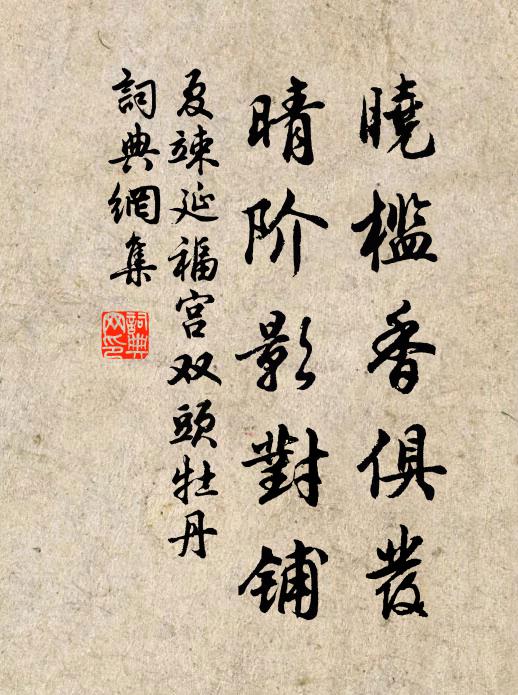 曉檻香俱發
晴阶影對铺
夏竦延福宫双頭牡丹
詞典網集
詞典
网印